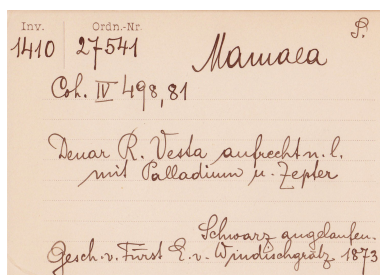 Inv. Ordn.-Nr. P.
1410 27541 Mamaea
Coh. IV 498,81
Denar R. Vesta aufrecht n. l.
mit Palladium u. Zepter
Schwarz angelaufen.
Gesch. v. Fürst E. v. Windischgrätz 1873